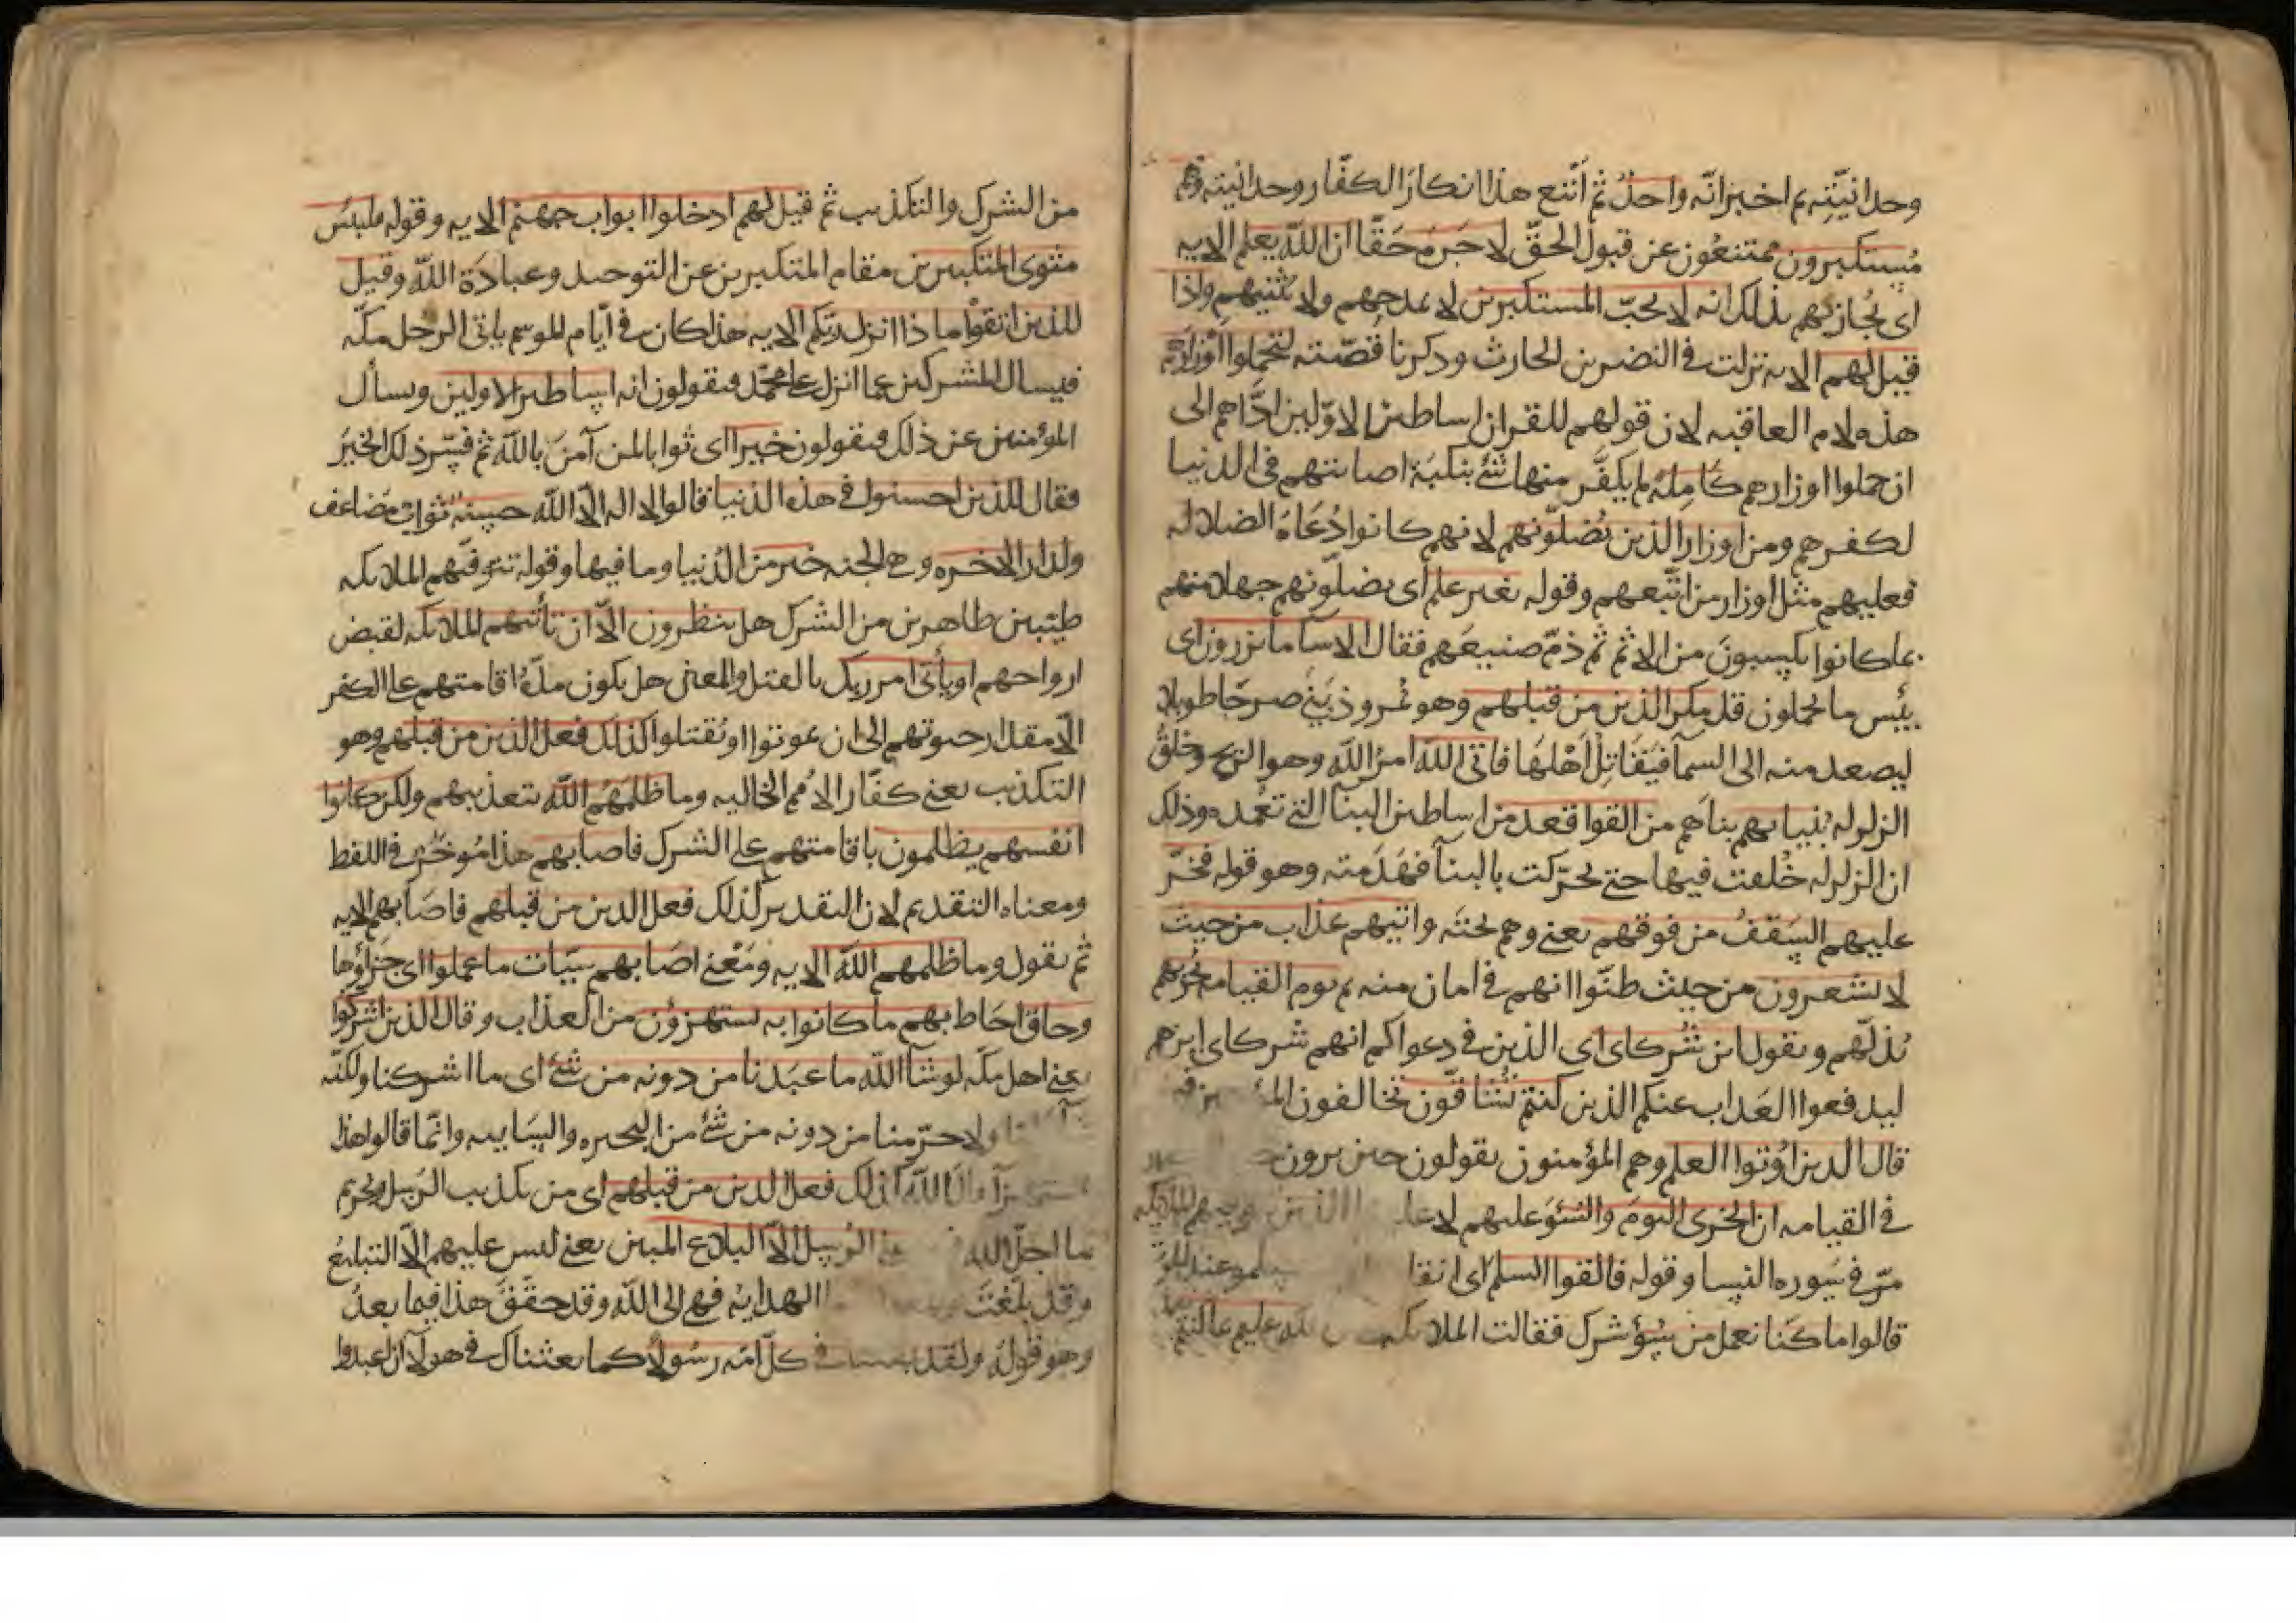 وحدانيّته ثم اخبر انّه واحد ثم أتبع هذا انكار الكفّار وحدانيته وهم
مُستكبرون ممتنعون عن قبول الحقّ لا جَرمَ حَقّا ان الله يعلم الايه
اى يُجازيهم بذلك انه لا يحبّ المستكبرين لا يمدحهم ولا يثنيهم واذا
قيل لهم الايه نزلت فى النضر بن الحارث وذكرنا قصّته ليحملوا اوزارهم
هذه لام العاقبه لان قولهم للقران اساطير الاوّلين ادّاهم الى
ان حملوا اوزارهم كاملة لم يكفَّر منها شئ بنكبة اصابتهم فى الدنيا
لكفرهم ومن اوزار الذين يُضلّونهم لانهم كانوا دُعَاة الضلاله
فعليهم مثل اوزار من اتّبعهم وقوله بغير علم اى يضلّونهم جهلا منهم
بما كانوا يكسبونَ من الاثم ثم ذمّ صنيعَهم فقال الا سآ ما يزرون اى
بئس ما يحملون قد مكر الذين من قبلهم وهو نُمروذ بَنَى صرحًا طويلا
ليصعد منه الى السمآ فيُقَاتِلَ اَهْلَهَا فاتى الله امرُ الله وهو الريح وخلقُ
الزلزله بُنيانهم بناهم من القواعد من اساطين البنآ التى تعمده وذلك
ان الزلزله خُلقت فيها حتى تحرّكت بالبنآ فهَدَمته وهو قوله فخرّ
عليهم السَقفُ من فوقهم يعنى وهم تحته واتيهم عذاب من حيث
لا يشعرون من حيث ظنّوا انهم فى امان منه ثم يوم القيامه يُخزيهم
يُذلّهم ويقول اين شُركاى اى الذين فى دعواكم انهم شركاى اين هم
ليدفعوا العَذاب عنكم الذين كنتم تُشاقّون تخالفون المؤ ين فيهم
قال الذين اوُتوا العلم وهم المؤمنون يقولون حين يرون
فى القيامه ان الخزى اليومَ والسّوَ عليهم لا علينا الذين توفيهم الملايكه
مرّ فى سَوره النسا وقوله فالقوا السلم اى انقا عند الموت
قالوا ما كنا نعمل من سُؤ شرك فقالت الملايكه بلى ان الله عليم بما كنتم
من الشرك والتكذيب ثم قيل لهم ادخلوا ابواب جهنم الايه وقوله فلبئس
مثوى المتكبرين مقام المتكبرين عن التوحيد وعبادَة الله وقيل
للذين اتقوا ماذا انزل ربّكم الايه هذا كان فى ايّام الموسم ياتى الرجل مكّه
فيسال المشركين عما انزل على محمّد فيقولون انه اساطير الاولين ويسأل
المؤمنين عن ذلك فيقولون خيرا اى ثوابا لمن آمَن بالله ثم فسّر ذلك الخيرَ
فقال للذين احسنوا فى هذه الدنيا قالوا لا اله الّا الله حسنه ثواب مضاعف
ولدار الاخره وهى الجنه خير من الدّنيا وما فيها وقوله تتوفّيهم الملايكه
طيّبين طاهرين من الشرك هل ينظرون الّا ان تأتيهم الملايكه لقبض
ارواحهم او يأتى امر ربك بالقتل والمعنى هل يكون مدّة اقامتهم على الكفر
الّا مقدار حيوتهم الى ان يموتوا او يُقتلوا كذلك فعل الذين من قبلهم وهو
التكذيب يعنى كفّار الاُمم الخاليه وما ظلمَهُمُ الله بتعذيبهم ولكن كانوا
انفسهم يظلمون باقامتهم على الشرك فاصابهم هذا مُوخّر فى اللفظ
ومعناه التقديم لان التقدير كذلك فعل الذين من قبلهم فاصَابهم الايه
ثم يقول وما ظلمهم الله الايه ومَعْنى اصَابهم سيّئات ما عملوا اى جَزاؤُها
وحاق احَاط بهم ما كانوا به يستهزؤن من العذاب وقال الذين اشركوا
يعنى اهل مكّه لو شآ الله ما عبَدنا من دونه من شئ اى ما اشركنا ولكنّه
ولا حرّمنا من دونه من شئ من البحيره والسَايبه وانّما قالوا هذا
استهزآ قال الله كذلك فعل الذين من قبلهم اى من تكذيب الرسل وتحريم
ما احلّ الله الرُسل الّا البلاغ المبين يعنى ليس عليهم الّا التبليغ
وقد بلّغتَ الهدايه فهى الى الله وقد حقّقَ هذا فيما بعدُ
وهو قولُهُ ولقد بعثنا فى كلّ امّه رسُولًا كما بعثناك فى هولآ ان اعبدوا